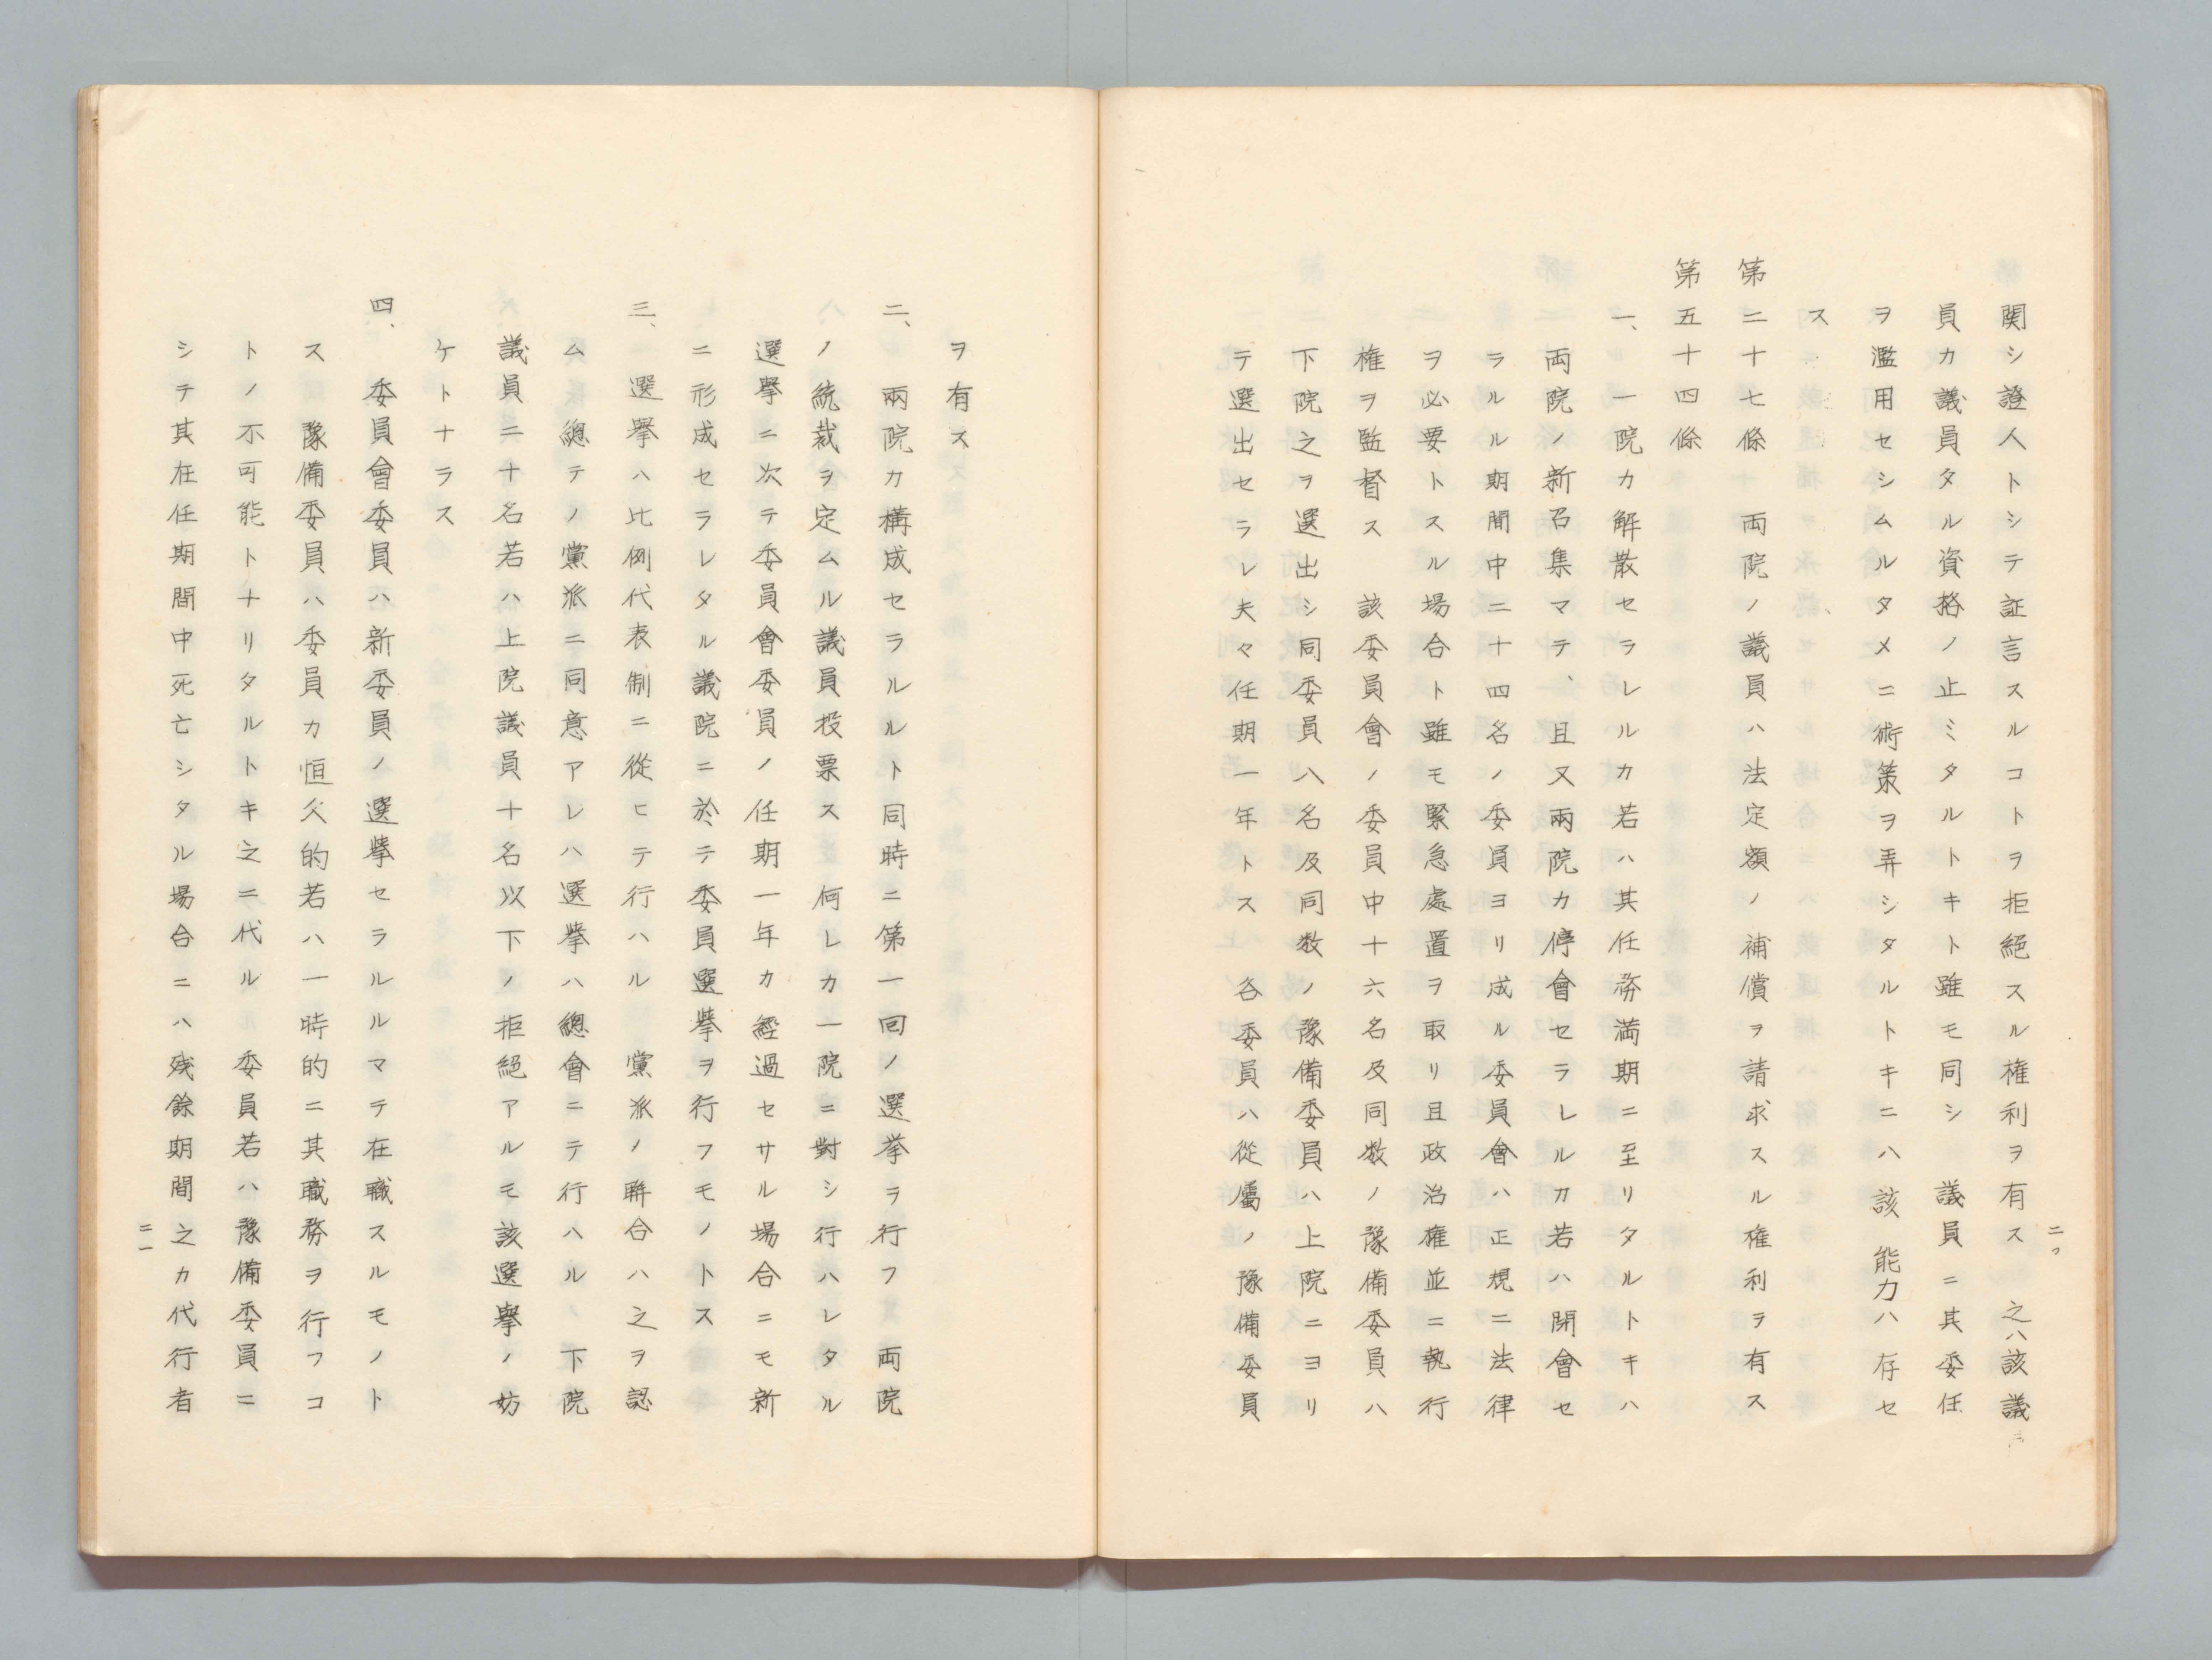 関シ證人トシテ証言スルコトヲ拒絕スル権利ヲ有ス　之ハ該議
員カ議員タル資格ノ止ミタルトキト雖モ同シ　議員ニ其委任
ヲ濫用セシムルタメニ術策ヲ弄シタルトキニハ該能力ハ存セ
ス
第二十七條　両院ノ議員ハ法定額ノ補償ヲ請求スル権利ヲ有ス
第五十四條
一、一院カ解散セラレルカ若ハ其任務満期ニ至リタルトキハ
両院ノ新召集マテ、且又兩院カ停會セラレルカ若ハ開會セ
ラルル期間中二十四名ノ委員ヨリ成ル委員會ハ正規ニ法律
ヲ必要トスル場合ト雖モ緊急處置ヲ取リ且政治権並ニ執行
権ヲ監督ス　該委員會ノ委員中十六名及同数ノ豫備委員ハ
下院之ヲ選出シ同委員八名及同数ノ豫備委員ハ上院ニヨリ
テ選出セラレ夫々任期一年トス　各委員ハ從屬ノ豫備委員
二〇
ヲ有ス
二、兩院カ構成セラルルト同時ニ第一回ノ選挙ヲ行フ　両院
ノ統裁ヲ定ムル議員投票ス　何レカ一院ニ對シ行ハレタル
選擧ニ次テ委員會委員ノ任期一年カ經過セサル場合ニモ新
ニ形成セラレタル議院ニ於テ委員選挙ヲ行フモノトス
三、選擧ハ比例代表制ニ從ヒテ行ハル　黨派ノ聨合ハ之ヲ認
ム　總テノ黨派ニ同意アレハ選挙ハ總會ニテ行ハル　下院
議員二十名若ハ上院議員十名以下ノ拒絕アルモ該選擧ノ妨
ケトナラス
四、委員會委員ハ新委員ノ選挙セラルルマテ在職スルモノト
ス　豫備委員ハ委員カ恒久的若ハ一時的ニ其職務ヲ行フコ
トノ不可能トナリタルトキ之ニ代ル　委員若ハ豫備委員ニ
シテ其在任期間中死亡シタル場合ニハ残餘期間之カ代行者
二一